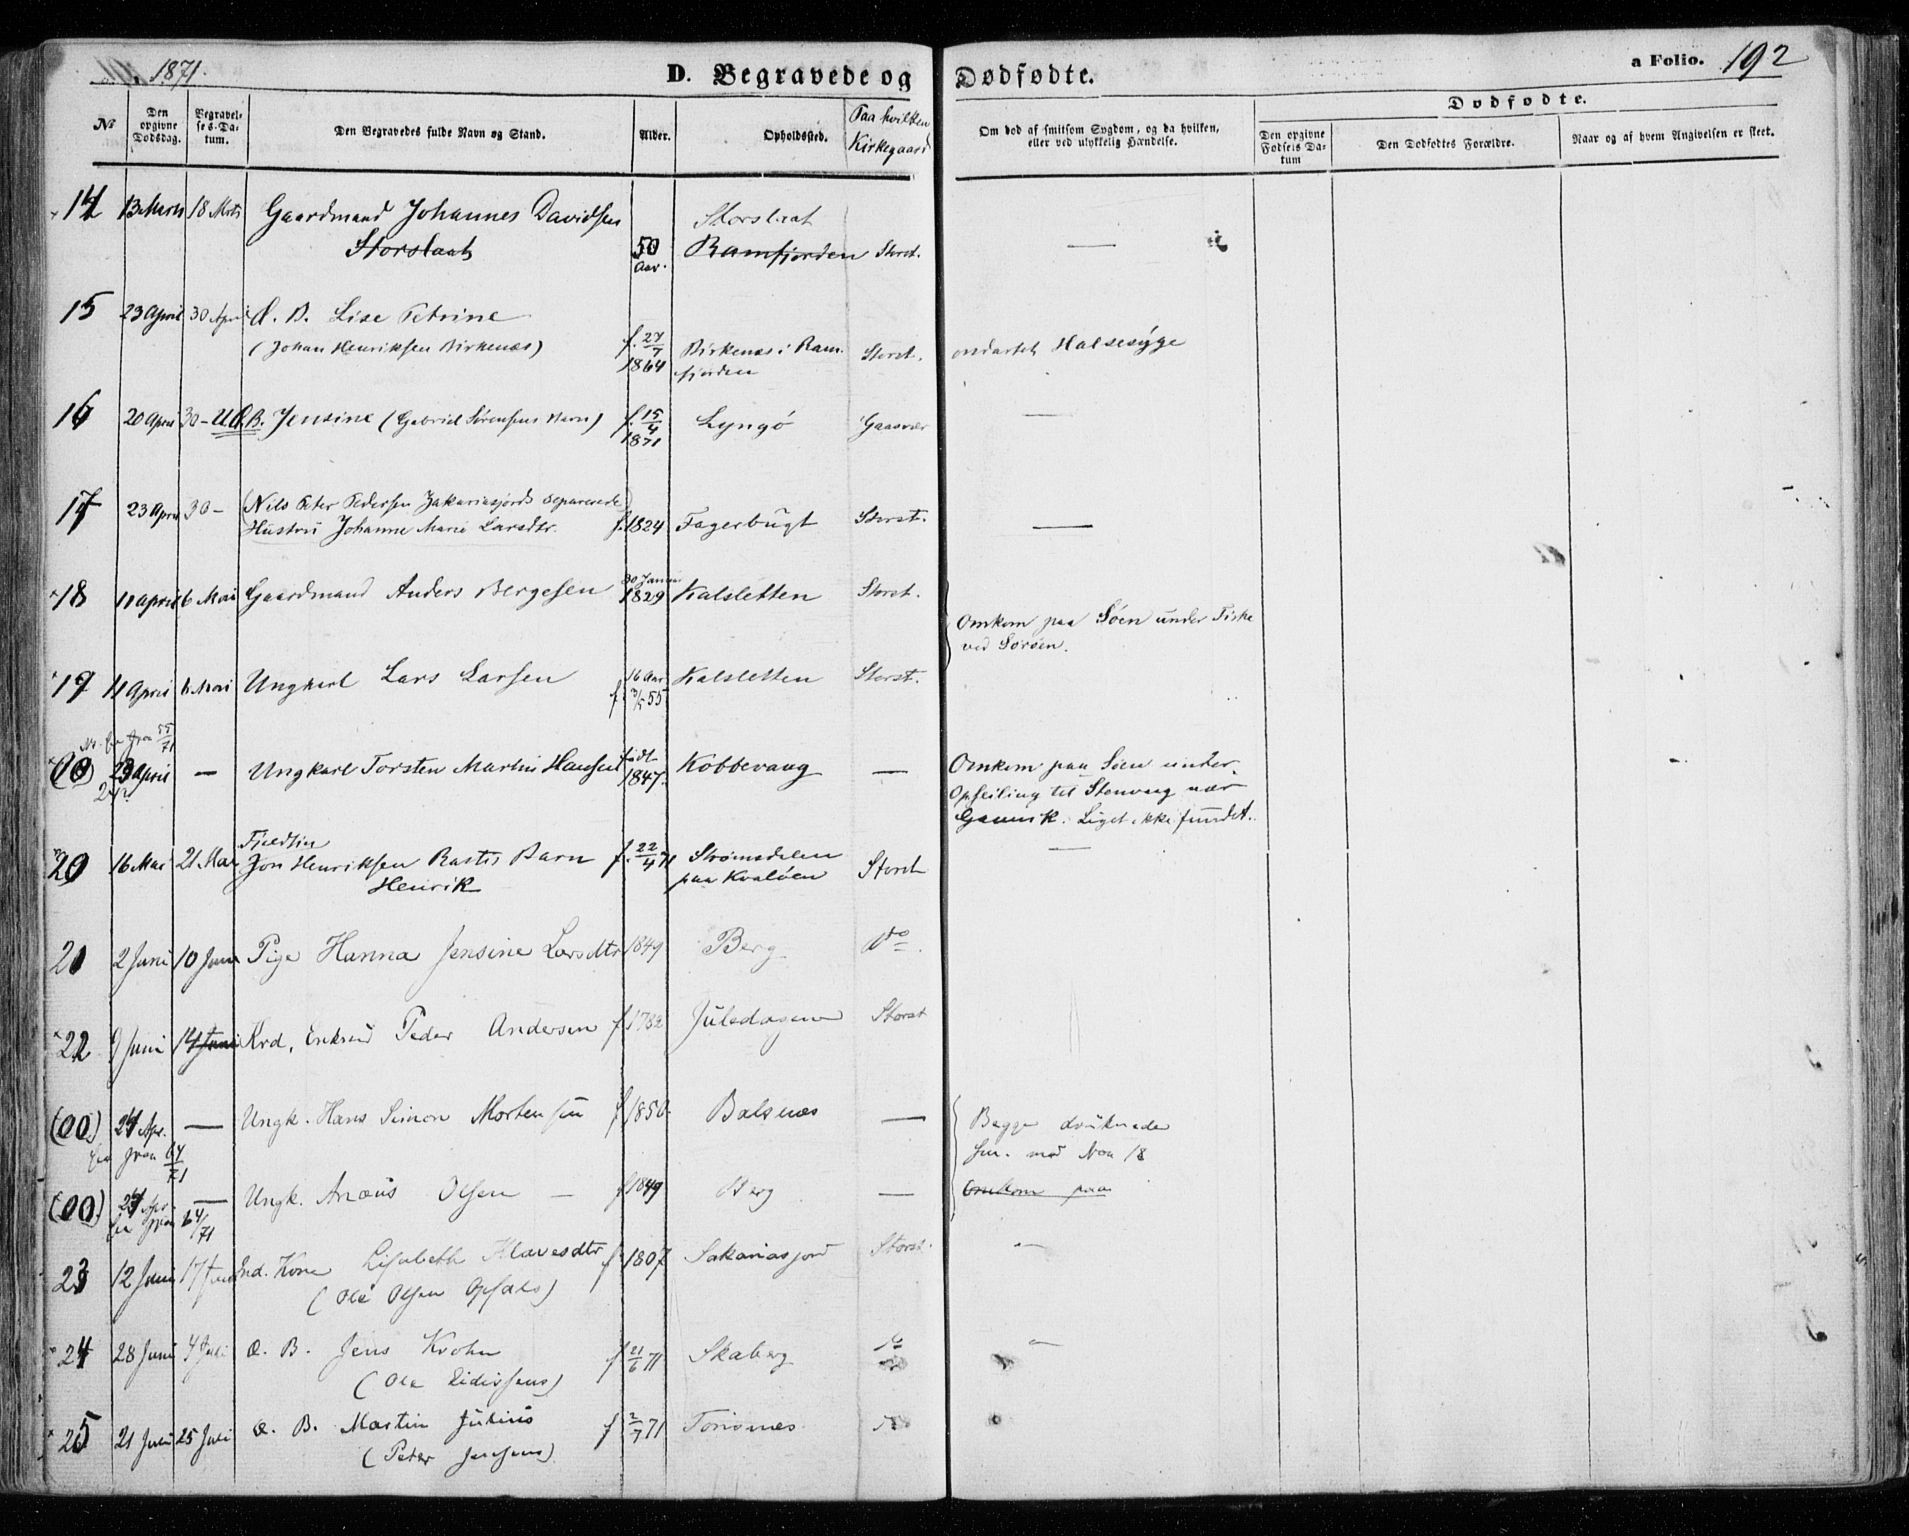 1871.
D. Begravede og Dødfødte.
a Folio. 192
No
Den opgivne Dødsdag.
Begravelses-Datum.
Den Begravedes fulde Navn og Stand.
Alder.
Opholdssted.
Paa hvilken Kirkegaard
Om død af smitsom Sygdom, og da hvilken, eller ved ulykkelig Hændelse.
Dødfødte.
Den opgivne Fødsels Datum
Den Dødfødtes Forældre.
Naar og af hvem Angivelsen er skeet.
14 13 Marts 18 Mrts Gaardmand Johannes Davidsen Storslaat 50 Aar. Storslaat Ramfjorden Storst. —
15 23 April 30 April Æ. B. Lise Petrine
(Johan Henriksen Birkenæs) f. 27/7 1864 Birkenæs i Ramfjorden Storst. ondartet Halsesyge
16 20 April 30 - U.Æ.B. Jensine (Gabriel Sørensens Barn) f. 15/4 1871 Lyngø Gaasvær —
17 23 April 30 - (Nils Peter Pedersen Zakariasjords separerede)
Hustru Johanne Marie Larsdtr. f. 1824 Fagerbugt Storst. —
18 11 April 6 Mai Gaardmand Anders Bergesen 30 Januar 1829 Kalsletten Storst.
Omkom paa Søen under Fiske
ved Sørøen.
19 11 April 6 Mai Ungkarl Lars Larsen 16 Aar f. 3/5 55 Kalsletten Storst.
55/71
(00) 23 April — Ungkarl Torsten Martin Hansen født 1847. Kobbevaag —
Omkom paa Søen under
Opseiling til Stenvaag nær
Gamvik. Liget ikke fundet.
20 16 Mai 21 Mai Fjeldfin
Jon Henriksen Rastis Barn
Henrik f. 22/4 71 Strømsdalen
paa Kvaløen Storst —
21 2 Juni 10 Juni Pige Hanna Jensine Larsdtr 1849 Berg Do
22 9 Juni 14 Juni Krd. Enkmd Peder Andersen f 1782 Storst
(00) 24 Apr. — Ungk. Hans Simon Mortensen f 1850 Balsnæs —
64/71
Begge druknede
sm. med Noa 18
(00) 24 Apr. — Ungk. Anæus Olsen — f 1849 Berg —
Omkom paa
64/71
23 12 Juni 17 Juni Ind. Kone Lisabeth Klavesdtr f 1807 Sakariasjord Storst. —
(Ole Olsen Opsals)
24 28 Juni 4 Juli Æ. B. Jens Krohn f 21/6 71 Skaberg Do —
(Ole Didrissens)
25 21 Juli 25 Juli Æ. B. Martin Julius f 2/7 71 Tonsnes Do
(Peter Jensens)